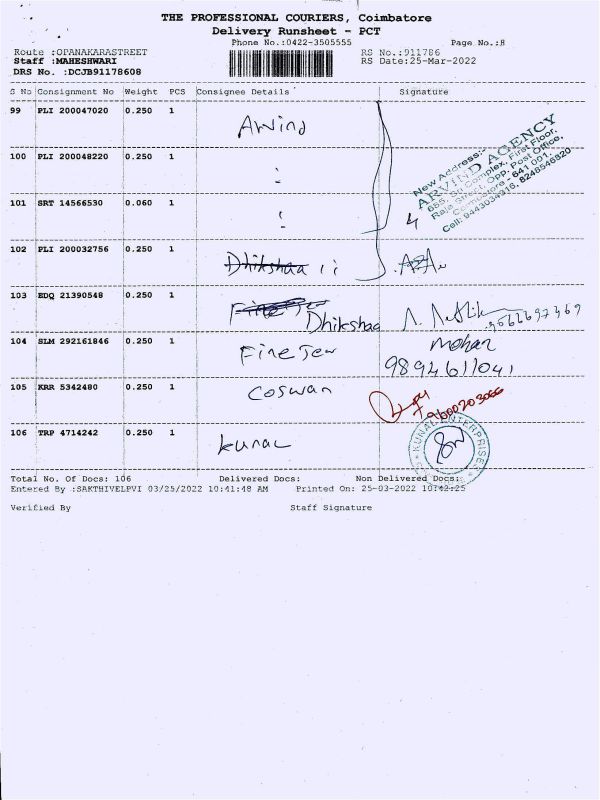 THE PROFESSIONAL COURIERS, Coimbatore
Delivery Runsheet - PCT
Phone No.:0422-3505555 Page No.:8
Route :OPANAKARASTREET RS No.:911786
Staff :MAHESHWARI RS Date:25-Mar-2022
DRS No. :DCJB91178608
S No Consignment No Weight PCS Consignee Details Signature
99 PLI 200047020 0.250 1 Arvind
New Address:-
ARVIND AGENCY
685, Sri Complex, First Floor,
Raja Street, Opp. Post Office,
Coimbatore - 641 001.
Cell: 9443034316, 8248546820
100 PLI 200048220 0.250 1
101 SRT 14566530 0.060 1 4
102 PLI 200032756 0.250 1 Dhikshaa
103 EDQ 21390548 0.250 1 Dhikshaa
104 SLM 292161846 0.250 1 Fine Jew Mohan
9894611041
105 KRR 5342480 0.250 1 Coswan
106 TRP 4714242 0.250 1 Kunal
KUNAL ENTERPRISES
Total No. Of Docs: 106 Delivered Docs: Non Delivered Docs:
Entered By :SAKTHIVELPVI 03/25/2022 10:41:48 AM Printed On: 25-03-2022 10:42:25
Verified By Staff Signature